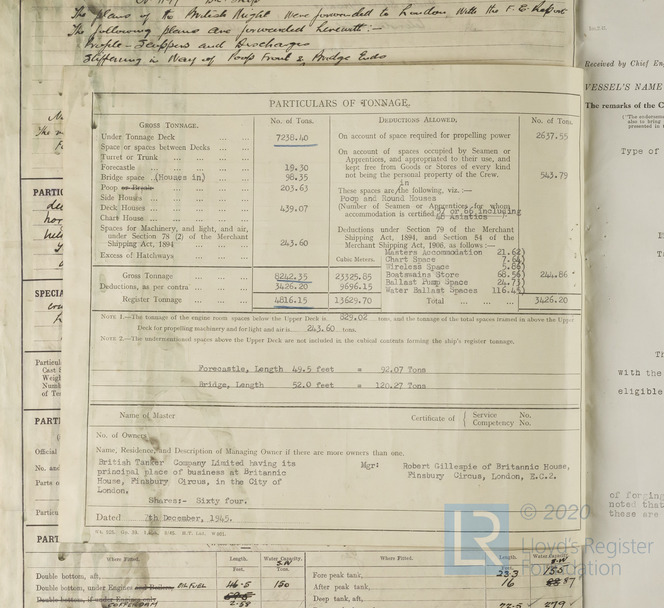 The plans of the British Might were forwarded to London with the F.E. Report
The following plans are forwarded herewith:—
Profile – Scuppers and Discharges
Stiffening in Way of Poop Front & Bridge Ends
Received by Chief Eng
VESSEL'S NAME
The remarks of the C
Type of
PARTICULARS OF TONNAGE.
GROSS TONNAGE. No. of Tons. DEDUCTIONS ALLOWED. No. of Tons.
Under Tonnage Deck 7238.40 On account of space required for propelling power 2637.55
Space or spaces between Decks
Turret or Trunk
Forecastle 19.30
Bridge space (Houses in) 98.35
Poop or Break 203.63
Side Houses
Deck Houses 439.07
Chart House
Spaces for Machinery, and light, and air, under Section 78 (2) of the Merchant Shipping Act, 1894 243.60
Excess of Hatchways
On account of spaces occupied by Seamen or Apprentices, and appropriated to their use, and kept free from Goods or Stores of every kind not being the personal property of the Crew. 543.79
These spaces are in the following, viz.:—
Poop and Round Houses
(Number of Seamen or Apprentices for whom accommodation is certified 57 or 66 including
Deductions under Section 79 of the Merchant Shipping Act, 1894, and Section 54 of the Merchant Shipping Act, 1906, as follows:—
Cubic Meters.
Masters Accommodation 21.62)
Chart Space
Wireless Space
Boatswains Store 68.56) 244.86
Ballast Pump Space 24.73)
Water Ballast Spaces 116.45)
Gross Tonnage 8242.35 23325.85
Deductions, as per contra 3426.20 9696.15
Register Tonnage 4816.15 13629.70 Total 3426.20
NOTE 1.—The tonnage of the engine room spaces below the Upper Deck is 829.02 tons, and the tonnage of the total spaces framed in above the Upper
Deck for propelling machinery and for light and air is 243.60 tons.
NOTE 2.—The undermentioned spaces above the Upper Deck are not included in the cubical contents forming the ship's register tonnage.
Forecastle, Length 49.5 feet = 92.07 Tons
Bridge, Length 52.0 feet = 120.27 Tons
Name of Master Certificate of { Service No.
Competency No.
No. of Owners
Name, Residence, and Description of Managing Owner if there are more owners than one.
British Tanker Company Limited having its
principal place of business at Britannic
House, Finsbury Circus, in the City of
London,
Mgr: Robert Gillespie of Britannic House,
Finsbury Circus, London, E.C.2.
Shares:- Sixty four.
Dated 7th December, 1945.
with the
eligible
of forging
noted that
these are
© 2020
LR
Lloyd's Register
Foundation
Where Fitted. Length. Water Capacity. Where Fitted. Length. Water Capacity.
Feet. Tons.
Double bottom, aft,
Double bottom, under Engines and Boilers, OIL FUEL 46.5 150
Double bottom, if under Engines only,
COFFERDAM 2.58
Fore peak tank, 23.3 155
After peak tank, 16 87
Deep tank, aft,